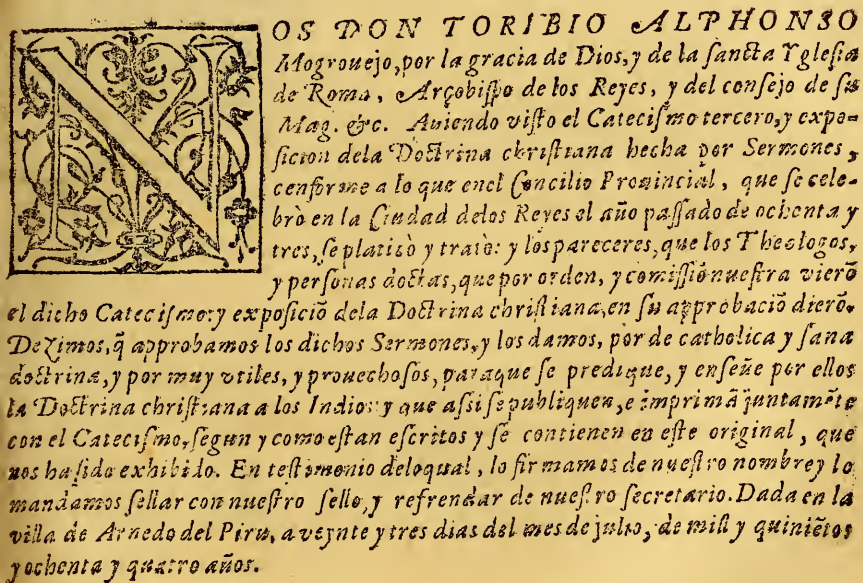 NOS DON TORIBIO ALPHONSO
Mogrouejo, por la gracia de Dios, y de la sancta Yglesia
de Roma, Arçobispo de los Reyes, y del consejo de su
Mag. &c. Auiendo visto el Catecismo tercero, y expo-
sicion dela Doctrina christiana hecha por Sermones,
conforme a lo que enel Concilio Prouincial, que se cele-
brò en la Ciudad delos Reyes el año passado de ochenta y
tres, se platicò y tratò: y los pareceres, que los Theologos,
y personas doctas, que por orden, y comissiõ nuestra vierõ
el dicho Catecismo: y exposiciõ dela Doctrina christiana, en su approbaciõ dierõ.
Dezimos, q̃ approbamos los dichos Sermones, y los damos, por de catholica y sana
doctrina, y por muy vtiles, y prouechosos, paraque se predique, y enseñe por ellos
la Doctrina christiana a los Indios: y que assi se publiquen, e imprimã juntamẽte
con el Catecismo, segun y como estan escritos y se contienen en este original, que
nos ha sido exhibido. En testimonio deloqual, lo firmamos de nuestro nombre y lo
mandamos sellar con nuestro sello, y refrendar de nuestro secretario. Dada en la
villa de Arnedo del Piru, a veynte y tres dias del mes de julio, de mill y quiniẽtos
y ochenta y quatro años.